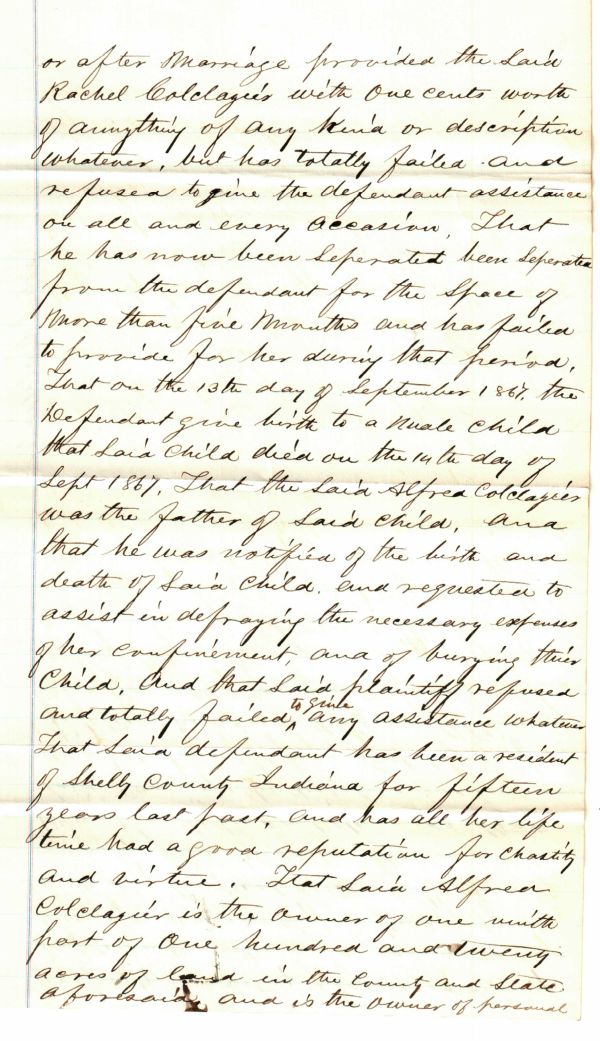 or after Marriage provided the Said
Rachel Colclagier with One cents worth
of annything of any kind or description
whatever, but has totally failed and
refused to give the defendant assistance
on all and every occasion, That
he has now been Seperated been Seperated
from the defendant for the Space of
More than five Months and has failed
to provide for her during that period.
That on the 13th day of September 1867, the
Defendant give birth to a Male Child
that Said Child died on the 14th day of
Sept 1867. That the Said Alfred Colclagier
was the father of Said Child, and
that he was notified of the birth and
death of Said Child. and requested to
assist in defraying the necessary expenses
of her confinement, and of burying thier
Child, And that Said plaintiff refused
and totally failed to give any assistance whatever
That Said defendant has been a resident
of Shelby County Indiana for fifteen
years last past, and has all her life
time had a good reputation for Chastity
and virtue. That Said Alfred
Colclagier is the Owner of one ninth
part of One hundred and twenty
acres of land in the County and State
aforesaid, and is the Owner of personal